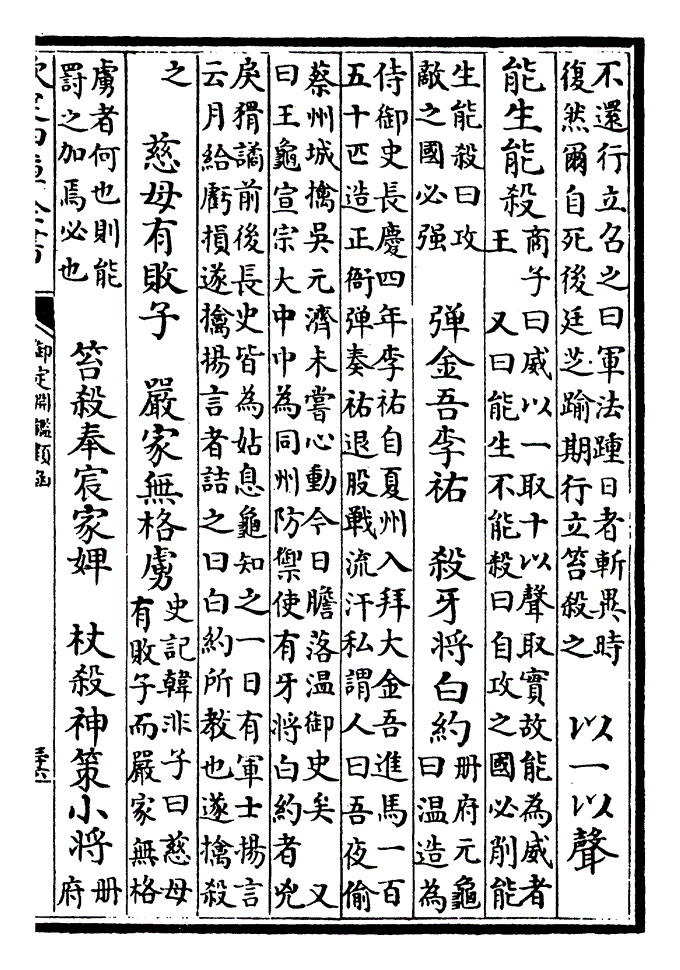 不還行立召之曰軍法踵日者斬異時
復然爾自死後廷芝踰期行立笞殺之
以一以聲
能生能殺
商子曰威以一取十以聲取實故能為威者
王 又曰能生不能殺曰自攻之國必削能
生能殺曰攻
敵之國必强
弹金吾李祐 殺牙將白約
册府元龜
曰温造為
侍御史長慶四年李祐自夏州入拜大金吾進馬一百
五十匹造正衙弹奏祐退股戰流汗私謂人曰吾夜偷
蔡州城擒吳元濟未嘗心動今日膽落温御史矣 又
曰王龜宣宗大中中為同州防禦使有牙將白約者兇
戾猾譎前後長史皆為姑息龜知之一日有軍士揚言
云月給虧損遂擒揚言者詰之曰白約所教也遂擒殺
之
慈母有敗子 嚴家無格虜
史記韓非子曰慈母
有敗子而嚴家無格
虜者何也則能
罰之加焉必也
笞殺奉宸家婢 杖殺神策小將
册
府
欽定四庫全書
御定淵鑑類函